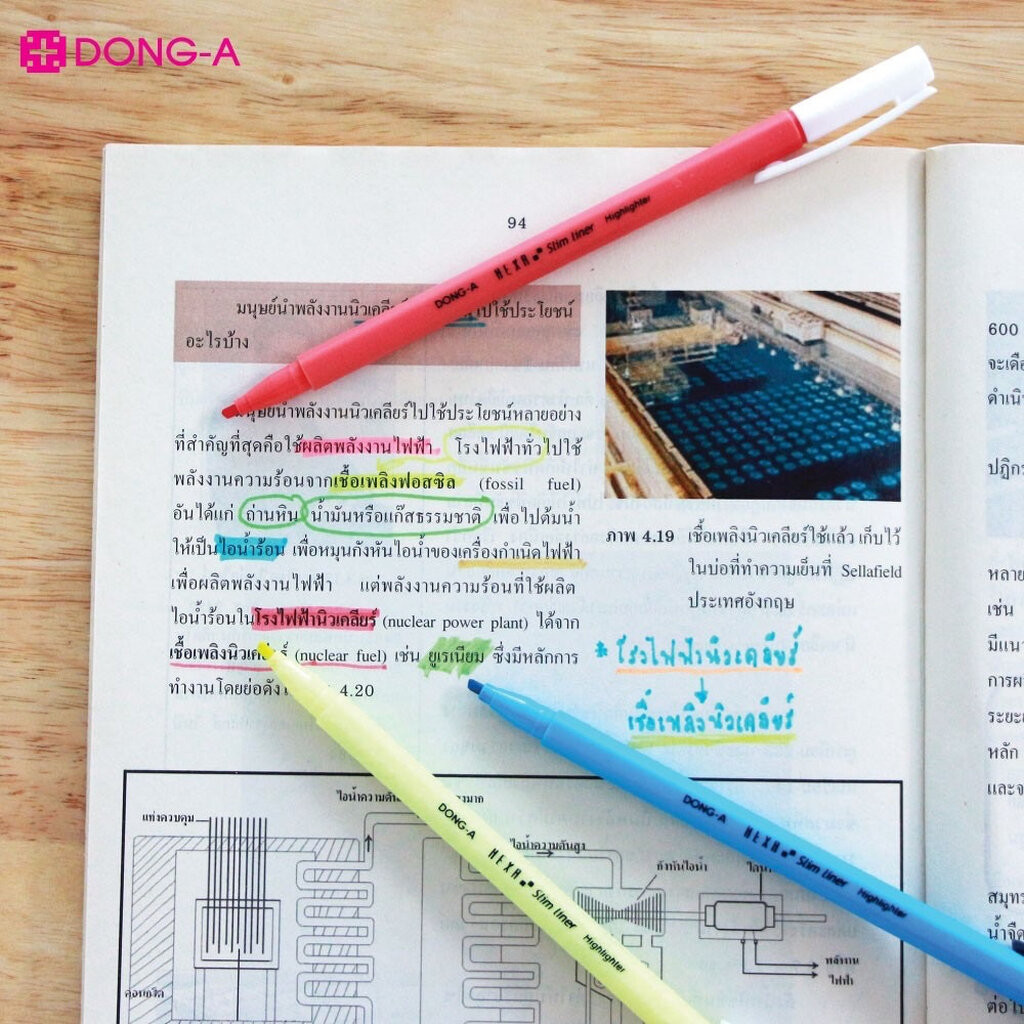 DONG-A
94
มนุษย์นำพลังงานนิวเคลีย ไปใช้ประโยชน์
อะไรบ้าง
มนุษย์นำพลังงานนิวเคลียร์ไปใช้ประโยชน์หลายอย่าง
ที่สำคัญที่สุดคือใช้ผลิตพลังงานไฟฟ้า โรงไฟฟ้าทั่วไปใช้
พลังงานความร้อนจากเชื้อเพลิงฟอสซิล (fossil fuel)
อันได้แก่ ถ่านหิน น้ำมันหรือแก๊สธรรมชาติ เพื่อไปต้มน้ำ
ให้เป็นไอน้ำร้อน เพื่อหมุนกังหันไอน้ำของเครื่องกำเนิดไฟฟ้า
เพื่อผลิตพลังงานไฟฟ้า แต่พลังงานความร้อนที่ใช้ผลิต
ไอน้ำร้อนในโรงไฟฟ้านิวเคลียร์ (nuclear power plant) ได้จาก
เชื้อเพลิงนิวเคลียร์ (nuclear fuel) เช่น ยูเรเนียม ซึ่งมีหลักการ
ทำงานโดยย่อดัง 4.20
ภาพ 4.19 เชื้อเพลิงนิวเคลียร์ใช้แล้ว เก็บไว้
ในบ่อที่ทำความเย็นที่ Sellafield
ประเทศอังกฤษ
* โรงไฟฟ้านิวเคลียร์
เชื้อเพลิงนิวเคลียร์
DONG-A HEXA Slim liner Highlighter
DONG-A HEXA Slim liner Highlighter
DONG-A HEXA Slim liner Highlighter
ไอน้ำความดัน มาก
แท่งควบคุม
ไอน้ำความดันสูง
กังหันไอน้ำ
พลังงาน
ไฟฟ้า
คอนกรีต
600
จะเดือ
ดำเนิ
ปฏิกร
หลาย
เช่น
มีแน
การผ
ระยะ
หลัก
และจ
สมุทร
น้ำจืด
ต่อไ